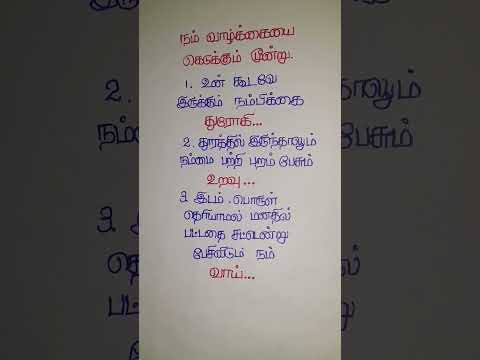 நம் வாழ்க்கையை
கெடுக்கும் மூன்று.
1. உன் கூடவே
இருக்கும் நம்பிக்கை
துரோகி...
2. தூரத்தில் இருந்தாலும்
நம்மை பற்றி புறம் பேசும்
உறவு...
3. இடம் . பொருள்
தெரியாமல் மனதில்
பட்டதை சட்டென்று
பேசிவிடும் நம்
வாய்...